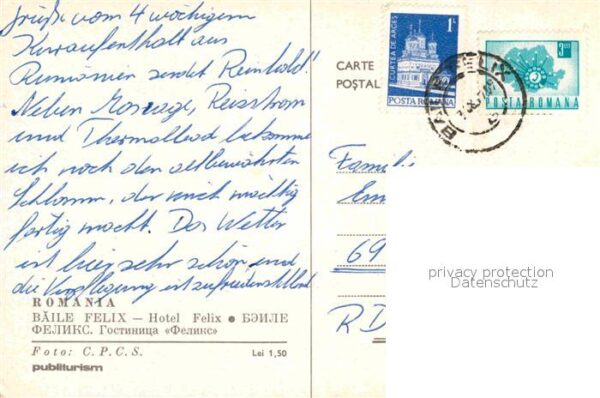 Grüße vom 4 wöchigem
Kuraufenthalt aus
Rumänien sendet Reinhold!
Neben Massage, Reizstrom
und Thermalbad bekomme
ich noch den altbewährten
Schlamm, der mich mächtig
fertig macht. Das Wetter
ist hier sehr schön und
die Verpflegung ist zufriedenstellend
ROMÂNIA
BĂILE FELIX — Hotel Felix • БЭИЛЕ
ФЕЛИКС. Гостиница «Феликс»
Foto: C.P.C.S.
Lei 1,50
publiturism
CARTE
POŞTAL
1L
CURTEA DE ARGEŞ
POSTA ROMANA
3
POSTA ROMANA
FELIX
Famili
Em
69
RD
privacy protection
Datenschutz